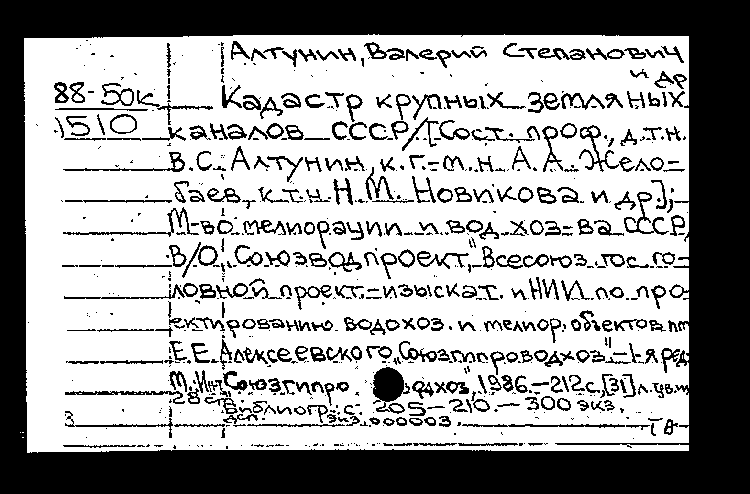 Алтунин, Валерий Степанович
и др
88-50к
1510
Кадастр крупных земляных
каналов СССР/[Сост. проф., д.т.н.
В.С. Алтунин, к.г.-м.н. А.А. Жело-
баев, к.т.н. Н.М. Новикова и др.];
М-во мелиорации и вод. хоз-ва СССР,
В/О "Союзводпроект", Всесоюз. гос. го-
ловной проект.-изыскат. и НИИ по про-
ектированию водохоз. и мелиор. объектов им
Е.Е. Алексеевского "Союзгипроводхоз" - 1-я ред.
М. Ин-т Союзгипро водхоз", 1986. - 212с., [31] л.
28 см
Библиогр.: с. 205-210. - 300 экз.
ДСП. Экз. 000003.